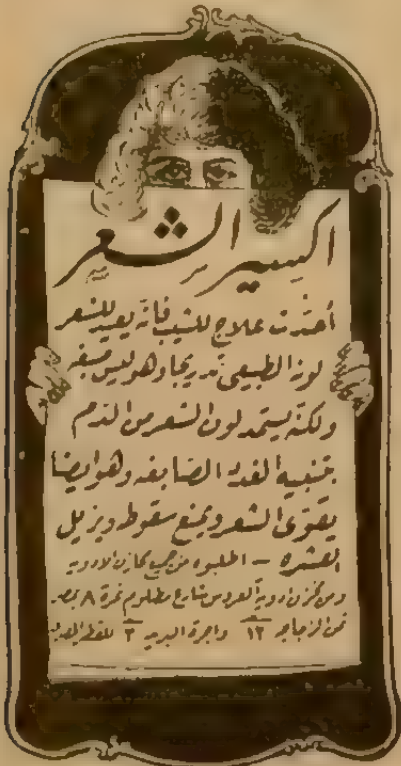 اكسير الشعر
أحدث علاج للشيب فانه يعيد للشعر
لونه الطبيعى تدريجا وهو ليس صبغه
ولكنه يستمد لون الشعر من الدم
بتنبيه الغدد الصابغه وهو ايضا
يقوى الشعر ويمنع سقوطه ويزيل
القشره – اطلبوه من جميع مخازن الادويه
ومن مخزن ادوية العروس شارع مظلوم نمرة ٨ بمصر
ثمن الزجاجه ١٢ واجرة البريد ٣ للقطر